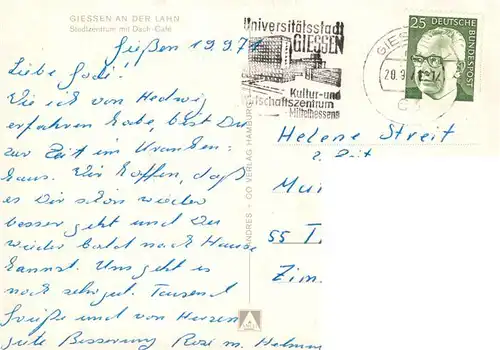 GIESSEN AN DER LAHN
Stadtzentrum mit Dach-Café
Gießen 19.9.71
Liebe Godi!
Wie ich von Hedwig
erfahren habe, bist Du
zur Zeit im Kranken-
haus. Wir hoffen, daß
es Dir schon wieder
besser geht und Du
wieder bald nach Hause
kannst. Uns geht es
noch sehr gut. Tausend
Grüße und von Herzen
gute Besserung Rosi m. Helmu
ANDRES + CO VERLAG HAMBURG
Universitätsstadt
GIESSEN
Kultur-und
tschaftszentrum
Mittelhessens
GIES
20.9.71
25 DEUTSCHE
BUNDESPOST
Helene Streit
z. Zeit
55 T
Zim.